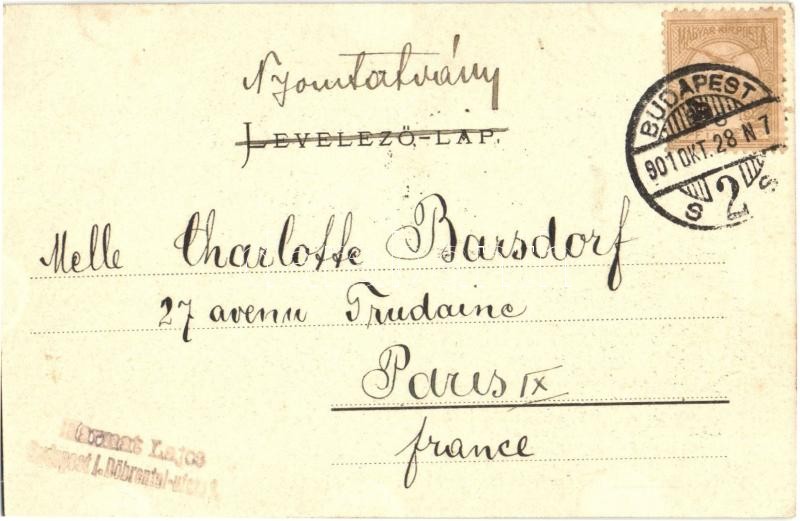 MAGYAR·KIR·POSTA
Nyomtatvány
LEVELEZŐ-LAP.
BUDAPEST
901 OKT. 28 N 7
S 2 S
Melle Charlotte Barsdorf
27 avenu Trudaine
Paris IX
france
Lajos
Budapest I. Döbrentei-utcza